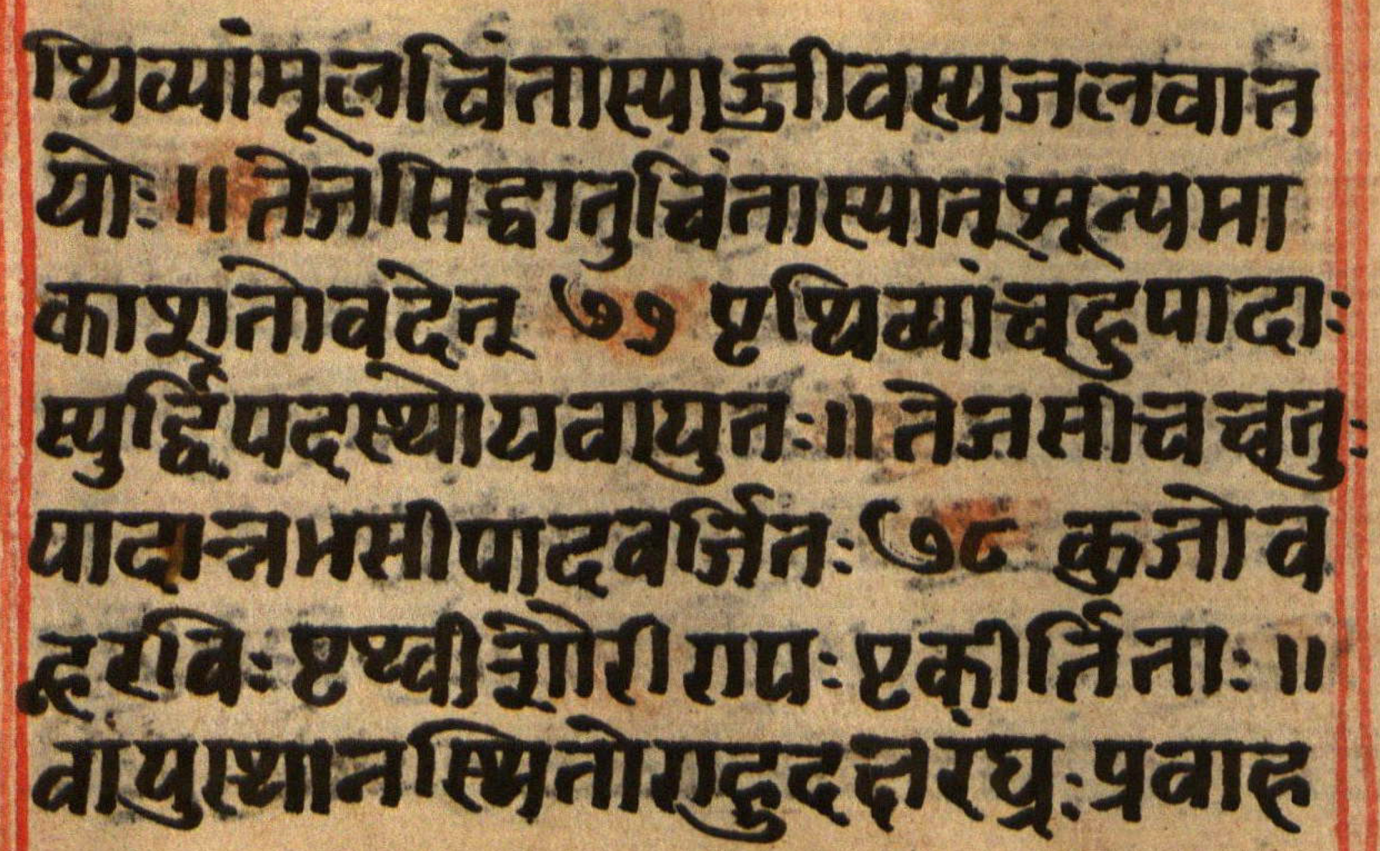 थिव्यांमूलचिंतास्याज्जीवस्यजलवात
योः ॥ तेजसिद्धातुचिंतास्यात्शून्यमा
काशतोवदेत् ७७ पृथिव्यांबहुपादाः
स्युर्द्विपदस्थोयवायुतः ॥ तेजसीचचतुः
पादान्नभसीपादवर्जितः ७८ कुजोव
ह्रविः पृथ्वीशौरीरापः प्रकीर्तिताः ॥
वायुस्थानस्थितोराहुदक्षरंघ्रः प्रवाह